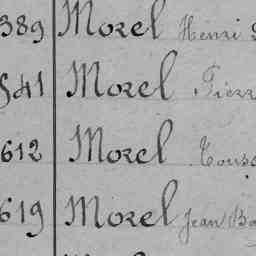 389 Morel Henri
541 Morel Pierr
612 Morel Touss
619 Morel Jean Ba